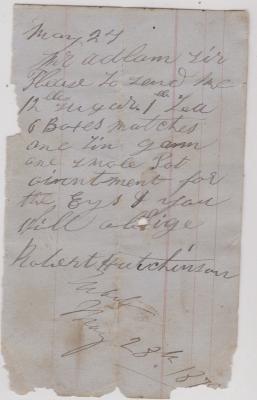 May 24
Mr adlam Sir
Please to send me
12 lbs Sugar. 1 lb Tea
6 Boxes matches
one tin gam
one smole Pot
ointment for
the Eys & you
will oblige
Robert Hutchinson
May 28th 18